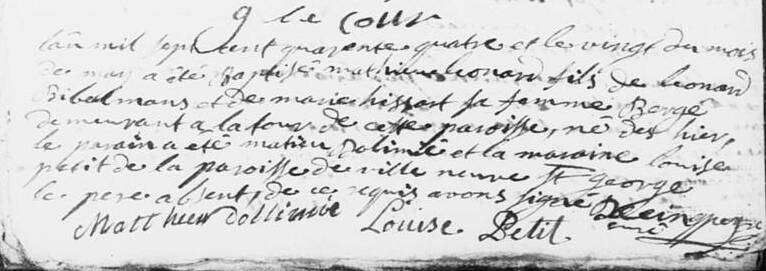 g le cour
l'an mil sept cent quarente quatre et le vingt du mois
de may a été Baptisé mathieu leonard fils de leonard
Bibalmans et de marie hissart sa femme Bergé
demeurant a la tour de cette paroisse, né des hier,
le parain a été matieu Dolimié et la maraine louise
petit de la paroisse de ville neuve St george
le pere absent, de ce requis avons signé
Mattheu dollimié Louise Petit curé